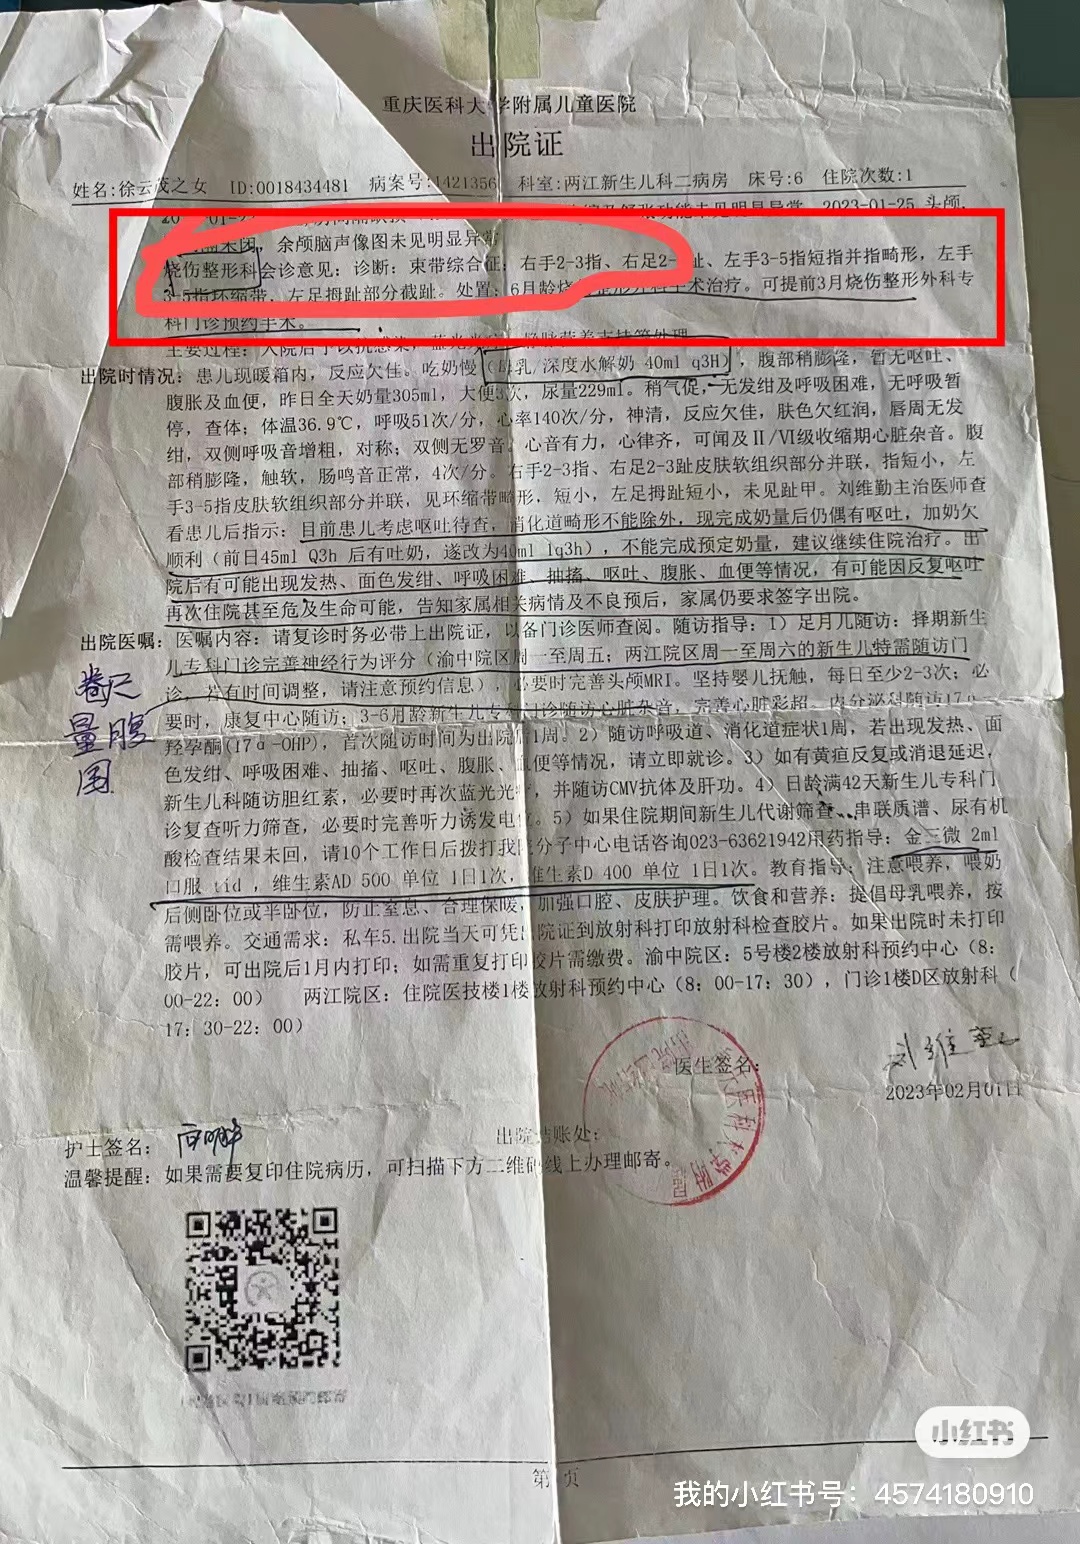 重庆医科大学附属儿童医院
出院证
姓名:徐云茂之女 ID:0018434481 病案号:1421356 科室:两江新生儿科二病房 床号:6 住院次数:1
未见明显异常 2023-01-25 头颅
未闭，余颅脑声像图未见明显异常
烧伤整形科会诊意见：诊断：束带综合征：右手2-3指、右足2-趾、左手3-5指短指并指畸形，左手
3-5指环缩带，左足拇趾部分截趾。处置：6月龄烧伤整形外科手术治疗。可提前3月烧伤整形外科专
科门诊预约手术。
主要过程：入院后予以抗感染，
出院时情况：患儿现暖箱内，反应欠佳。吃奶慢（母乳/深度水解奶 40ml q3H），腹部稍膨隆，暂无呕吐、
腹胀及血便，昨日全天奶量305ml，大便3次，尿量229ml。稍气促，无发绀及呼吸困难，无呼吸暂
停，查体：体温36.9℃，呼吸51次/分，心率140次/分，神清，反应欠佳，肤色欠红润，唇周无发
绀，双侧呼吸音增粗，对称；双侧无罗音，心音有力，心律齐，可闻及Ⅱ/Ⅵ级收缩期心脏杂音。腹
部稍膨隆，触软，肠鸣音正常，4次/分。右手2-3指、右足2-3趾皮肤软组织部分并联，指短小，左
手3-5指皮肤软组织部分并联，见环缩带畸形，短小，左足拇趾短小，未见趾甲。刘维勤主治医师查
看患儿后指示：目前患儿考虑呕吐待查，消化道畸形不能除外，现完成奶量后仍偶有呕吐，加奶欠
顺利（前日45ml Q3h 后有吐奶，遂改为40ml lq3h），不能完成预定奶量，建议继续住院治疗。出
院后有可能出现发热、面色发绀、呼吸困难、抽搐、呕吐、腹胀、血便等情况，有可能因反复呕吐
再次住院甚至危及生命可能，告知家属相关病情及不良预后，家属仍要求签字出院。
出院医嘱：医嘱内容：请复诊时务必带上出院证，以备门诊医师查阅。随访指导：1）足月儿随访：择期新生
儿专科门诊完善神经行为评分（渝中院区周一至周五；两江院区周一至周六的新生儿特需随访门
诊，若有时间调整，请注意预约信息），必要时完善头颅MRI。坚持婴儿抚触，每日至少2-3次；必
要时，康复中心随访；3-6月龄新生儿专科门诊随访心脏杂音，完善心脏彩超。内分泌科随访17α
羟孕酮(17α-OHP)，首次随访时间为出院后1周。2）随访呼吸道、消化道症状1周，若出现发热、面
色发绀、呼吸困难、抽搐、呕吐、腹胀、血便等情况，请立即就诊。3）如有黄疸反复或消退延迟，
新生儿科随访胆红素，必要时再次蓝光光疗，并随访CMV抗体及肝功。4）日龄满42天新生儿专科门
诊复查听力筛查，必要时完善听力诱发电位。5）如果住院期间新生儿代谢筛查、串联质谱、尿有机
酸检查结果未回，请10个工作日后拨打我院分子中心电话咨询023-63621942用药指导：金三微 2ml
口服 tid ，维生素AD 500 单位 1日1次，维生素D 400 单位 1日1次。教育指导：注意喂养，喂奶
后侧卧位或半卧位，防止窒息、合理保暖，加强口腔、皮肤护理。饮食和营养：提倡母乳喂养，按
需喂养。交通需求：私车5.出院当天可凭出院证到放射科打印放射科检查胶片。如果出院时未打印
胶片，可出院后1月内打印；如需重复打印胶片需缴费。渝中院区：5号楼2楼放射科预约中心（8：
00-22：00） 两江院区：住院医技楼1楼放射科预约中心（8：00-17：30），门诊1楼D区放射科（
17：30-22：00）
卷尺
量腹
围
医生签名：
刘维勤
2023年02月01日
护士签名：
出院结账处：
温馨提醒：如果需要复印住院病历，可扫描下方二维码线上办理邮寄。
第 页
小红书
我的小红书号：4574180910